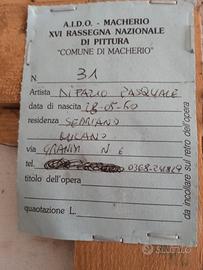 A.I.D.O. - MACHERIO
XVI RASSEGNA NAZIONALE
DI PITTURA
"COMUNE DI MACHERIO"
N 31
Artista DIPAZIO PASQUALE
data di nascita 28-05-60
residenza SEDRIANO
MILANO
via GRAMSI N 6
tel. 0368-
titolo dell'opera
quaotazione L.
da incollare sul retro dell'opera
Subito